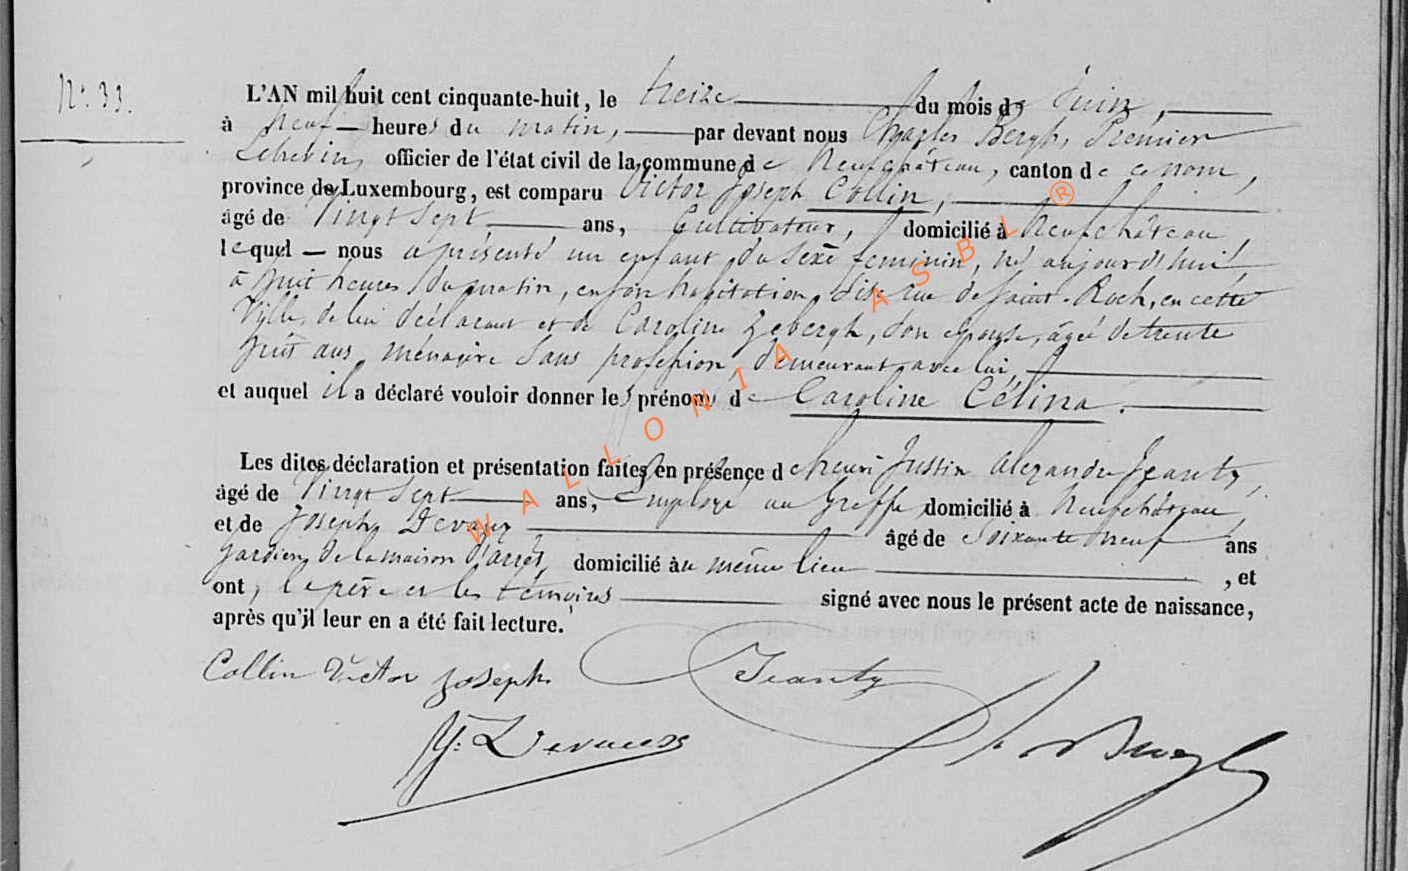 N.° 33.
L'AN mil huit cent cinquante-huit, le treize du mois de Juin,
à neuf heures du matin, par devant nous Charles Bergh, Premier
Echevin, officier de l'état civil de la commune de Neufchâteau, canton de ce nom,
province de Luxembourg, est comparu Victor Joseph Collin,
âgé de Vingt Sept ans, Cultivateur, domicilié à Neufchâteau,
lequel nous a présenté un enfant du Sexe feminin, né aujourd'hui,
à huit heures du matin, en son habitation, Sise rue de Saint-Roch, en cette
Ville, de lui déclarant et de Caroline Zebergh, Son epouse, âgée de trente
huit ans, ménagère Sans profession, demeurant avec lui,
et auquel il a déclaré vouloir donner les prénoms de Caroline Célina.
Les dites déclaration et présentation faites en présence de henri Justin Alexandre Jeanty,
âgé de Vingt Sept ans, Employé au Greffe, domicilié à Neufchâteau,
et de Joseph Devaux âgé de Soixante neuf ans
gardien de la maison d'arrêt, domicilié au même lieu , et
ont, le père et les témoins signé avec nous le présent acte de naissance,
après qu'il leur en a été fait lecture.
Collin Victor Joseph Jeanty
J: Devaux Bergh
WALLONIA ASBL ®